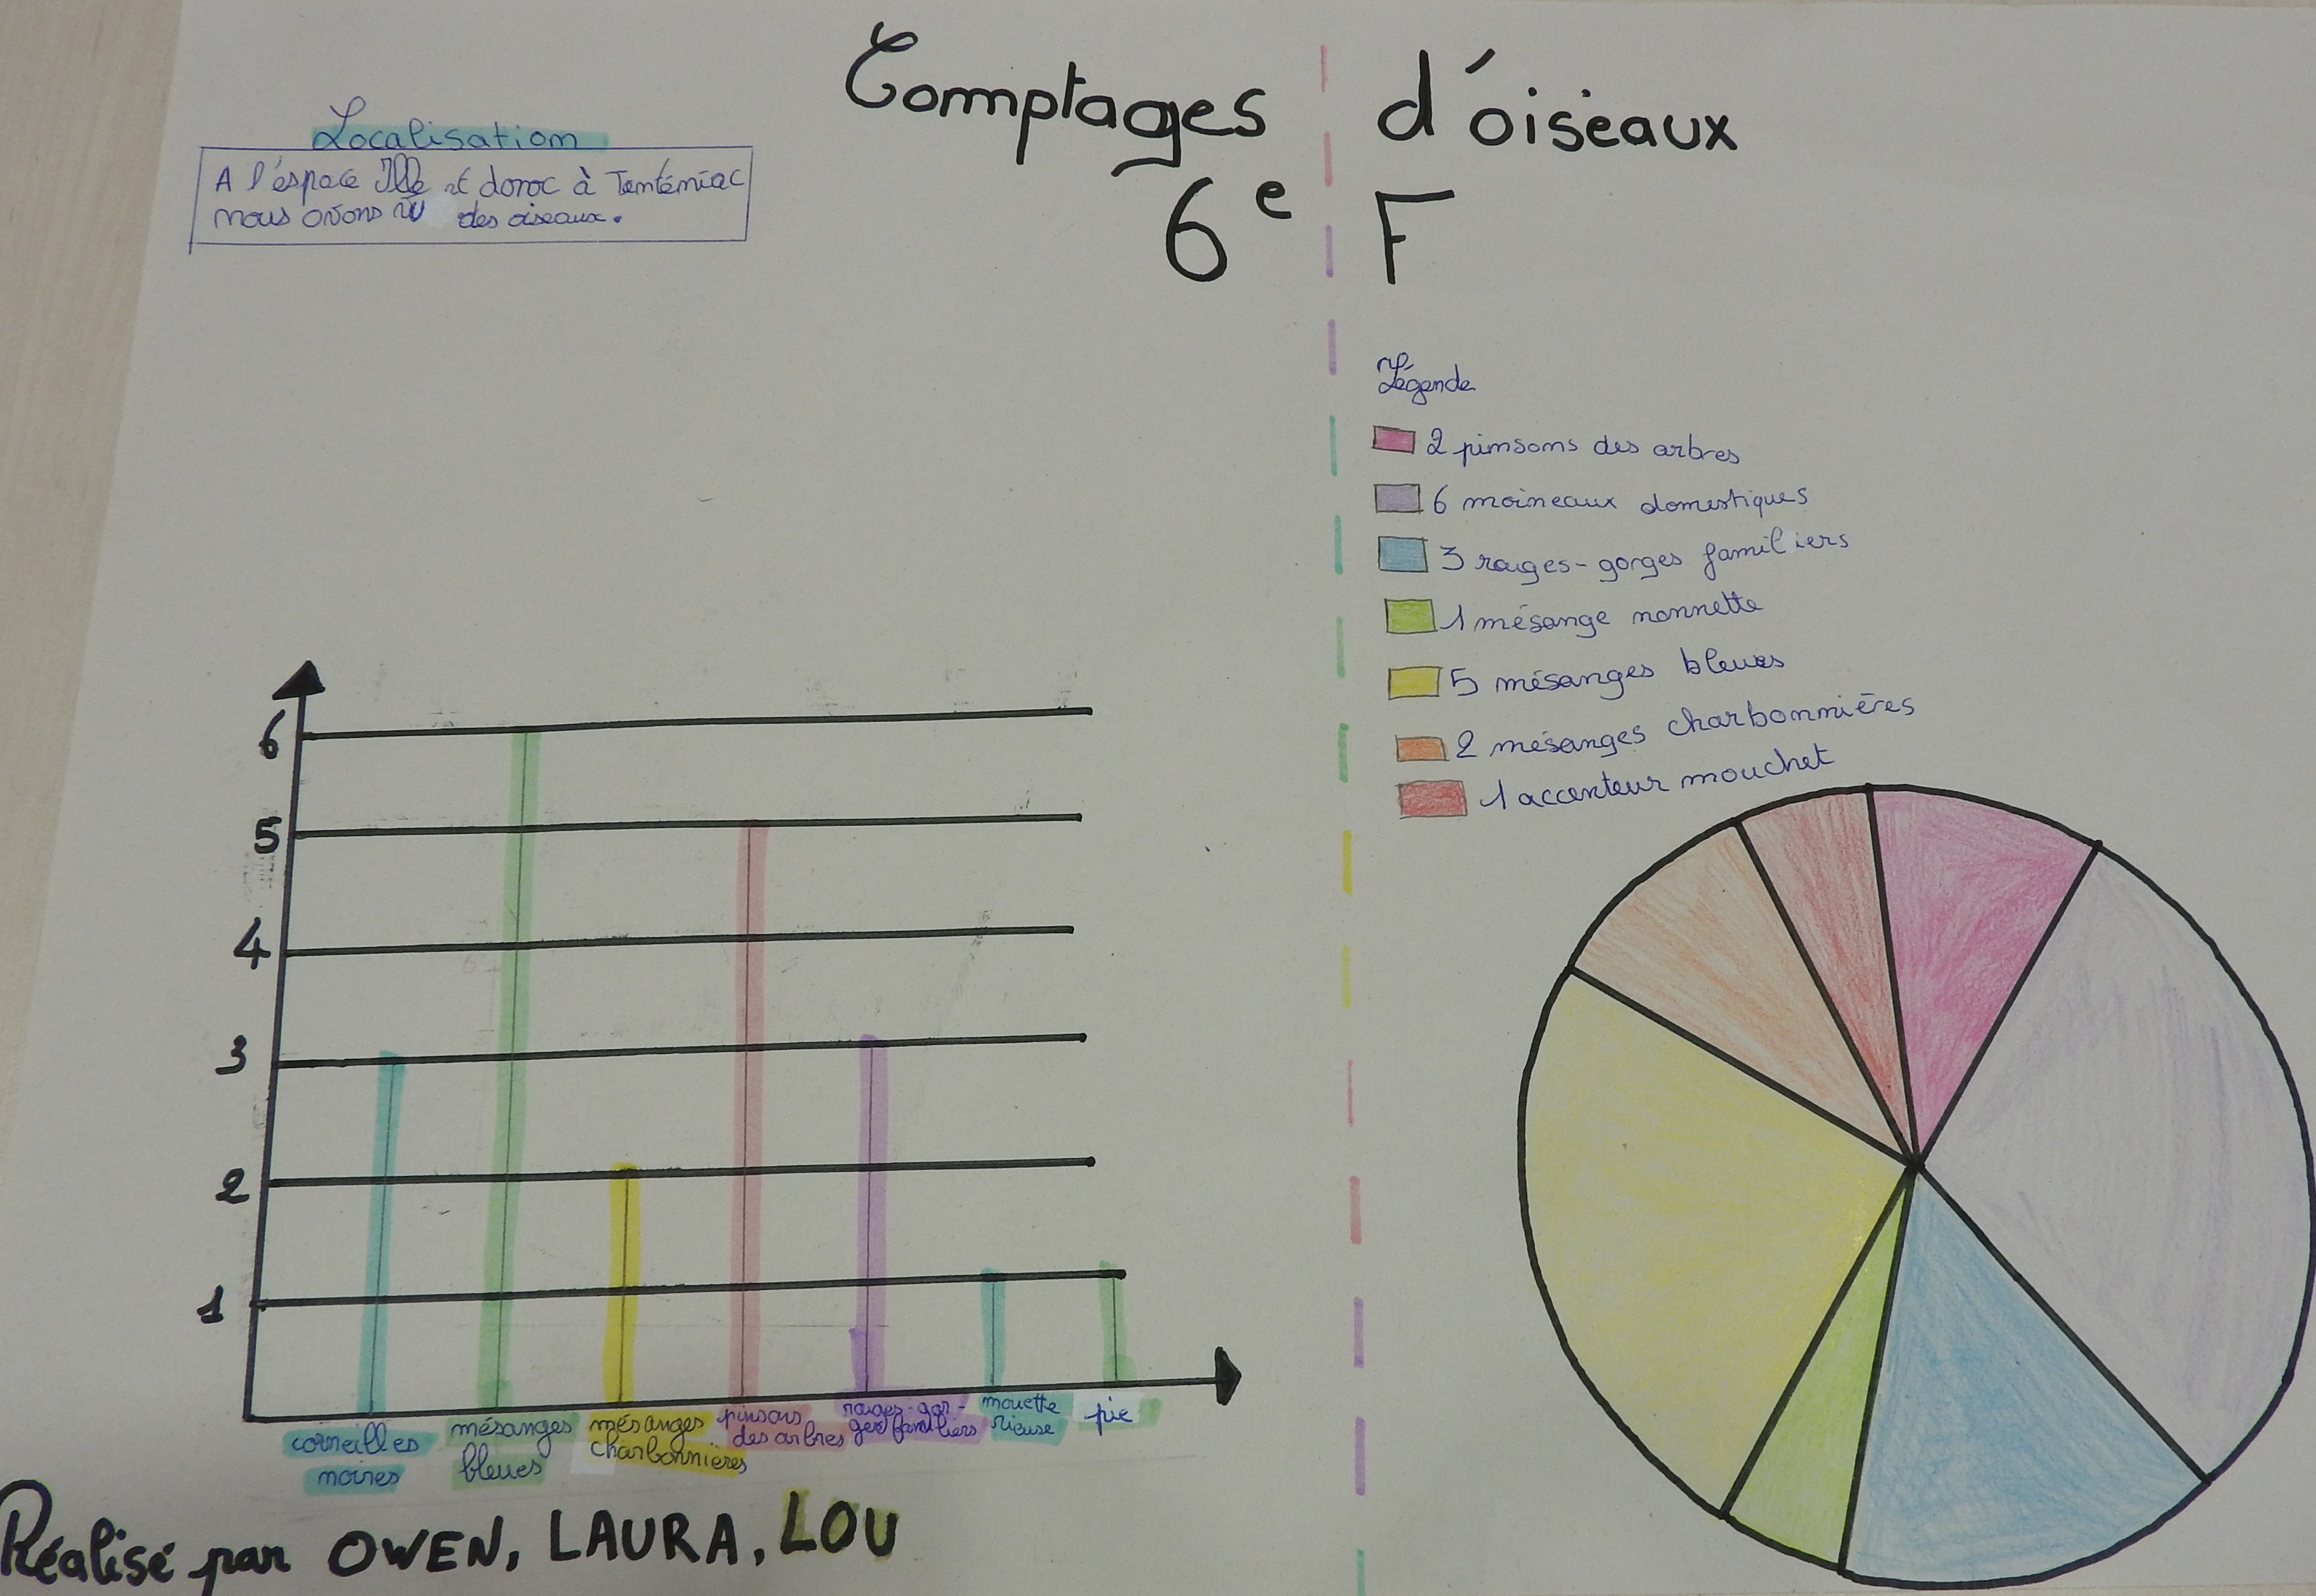 Comptages d'oiseaux
6e F
Localisation
A l'éspace Ille et donac à Tenténiac
nous avons vu des oiseaux.
6
5
4
3
2
1
corneilles noires
mésanges bleues
mésanges charbonnières
pinsons des arbres
rouges-gorges familiers
mouette rieuse
pie
Réalisé par OWEN, LAURA, LOU
Légende
2 pinsons des arbres
6 moineaux domestiques
3 rouges-gorges familiers
1 mésange nonnette
5 mésanges bleues
2 mésanges charbonnières
1 accenteur mouchet